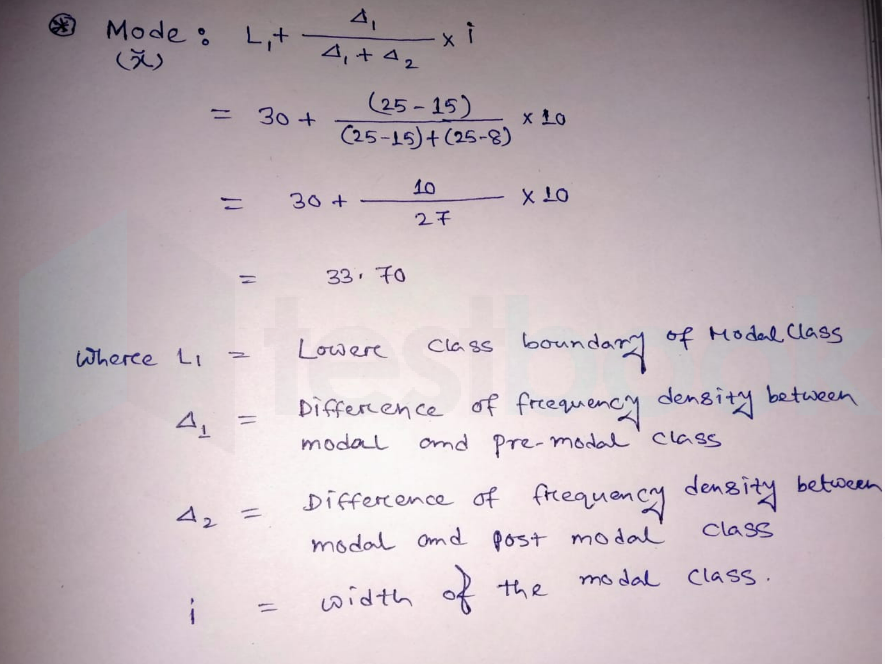 ⊛ Mode : L₁ + Δ₁ / (Δ₁ + Δ₂) × i
(x̆)
= 30 + (25 - 15) / (25-15)+(25-8) × 10
= 30 + 10 / 27 × 10
= 33.70
testbook
Wherce L1 = Lowerc class boundary of Modal Class
Δ₁ = Differcence of frcequency density between
modal and pre-modal class
Δ₂ = Differcence of frcequency density between
modal and post modal class
i = width of the modal class.